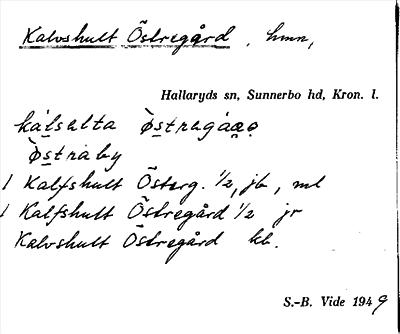 Kalvshult Östregård, hmn,
Hallaryds sn, Sunnerbo hd, Kron. l.
kálsalta òstragáꬱꬱ
Òstraby
1 Kalfshult Österg. 1/2, jb, ml
1 Kalfshult Östregård 1/2 jr
Kalvshult Östregård kb.
S.-B. Vide 1949